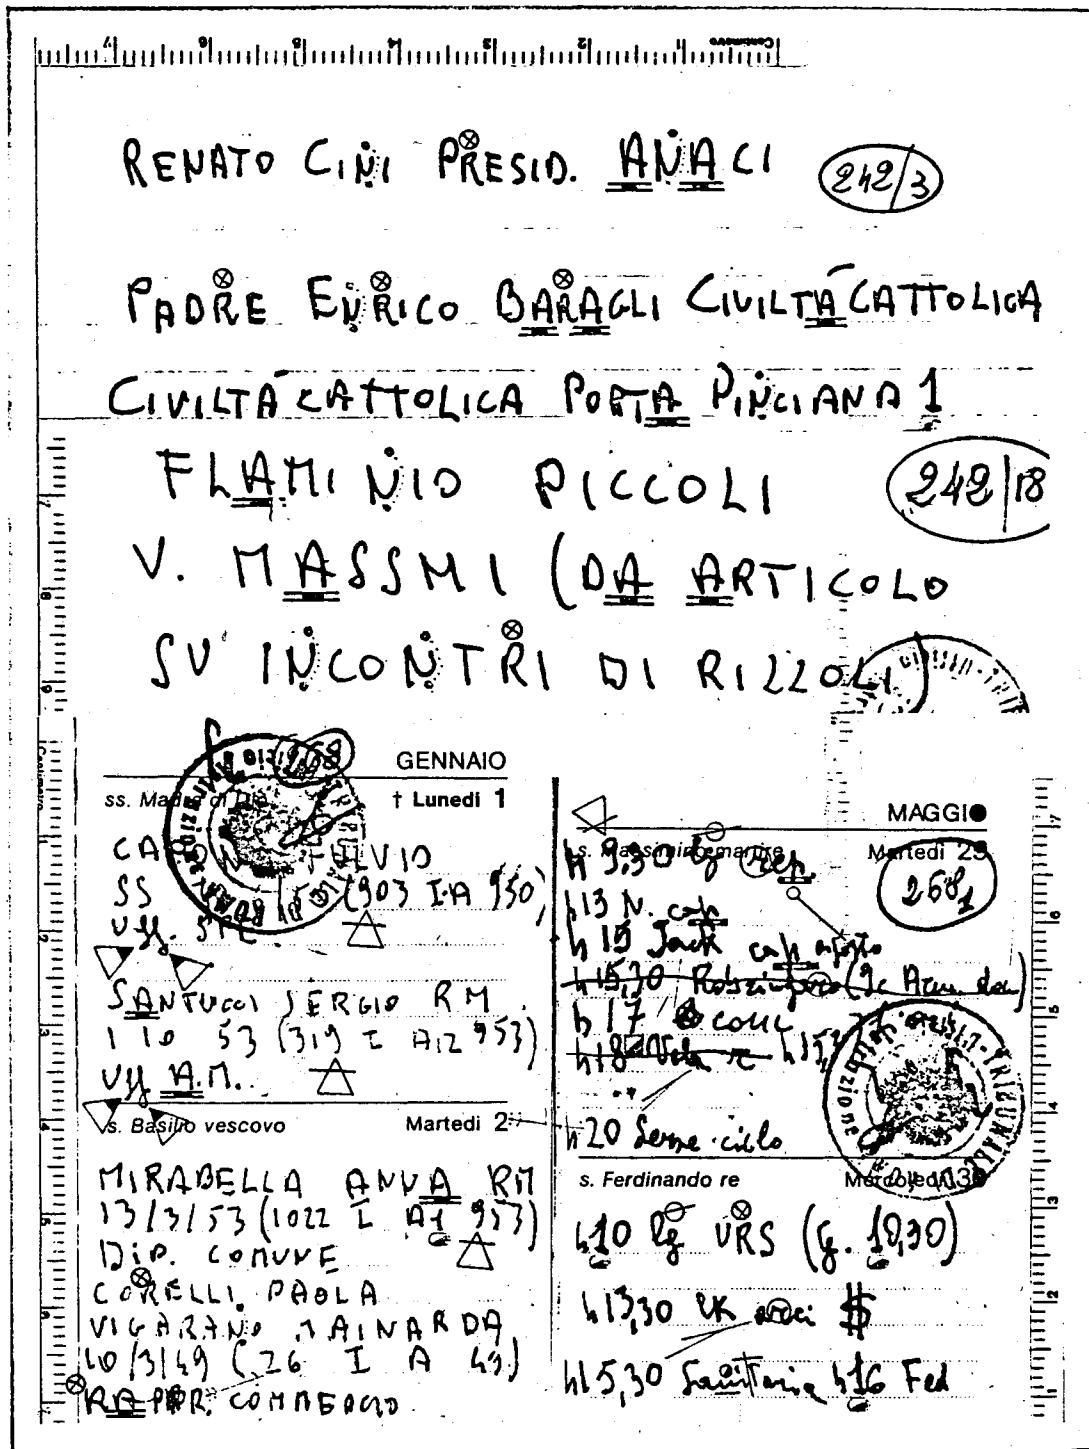 Centimetro
RENATO CINI PRESID. ANACI 242/3
PADRE ENRICO BARAGLI CIVILTÀ CATTOLICA
CIVILTÀ CATTOLICA PORTA PINCIANA 1
FLAMINIO PICCOLI 242/18
V. MASSMI (DA ARTICOLO
SU INCONTRI DI RIZZOLI)
268
GENNAIO
ss. Madre di Dio † Lunedì 1
FULVIO
SS (903 I A 950)
Uff.
SANTUCCI SERGIO RM
1 10 53 (319 I A12 953)
Uff A.M.
s. Basilio vescovo Martedì 2
MIRABELLA ANNA RM
13/3/53 (1022 I A1 953)
DIP. COMUNE
CORELLI PAOLA
VIGARANO MAINARDA
10/3/49 (26 I A 49)
RAPPR. COMMERCIO
MAGGIO
s. Massimino martire Martedì 29
268/1
h 9,30
h 13 N. cap
h 15 Jack cap
h 15,30
h 17
h 18
h 20 Serse ciclo
s. Ferdinando re Mercoledì 30
h 10 URS (G. 10,30)
h 13,30 UK $
h 15,30 Sanitaria h 16 Fed